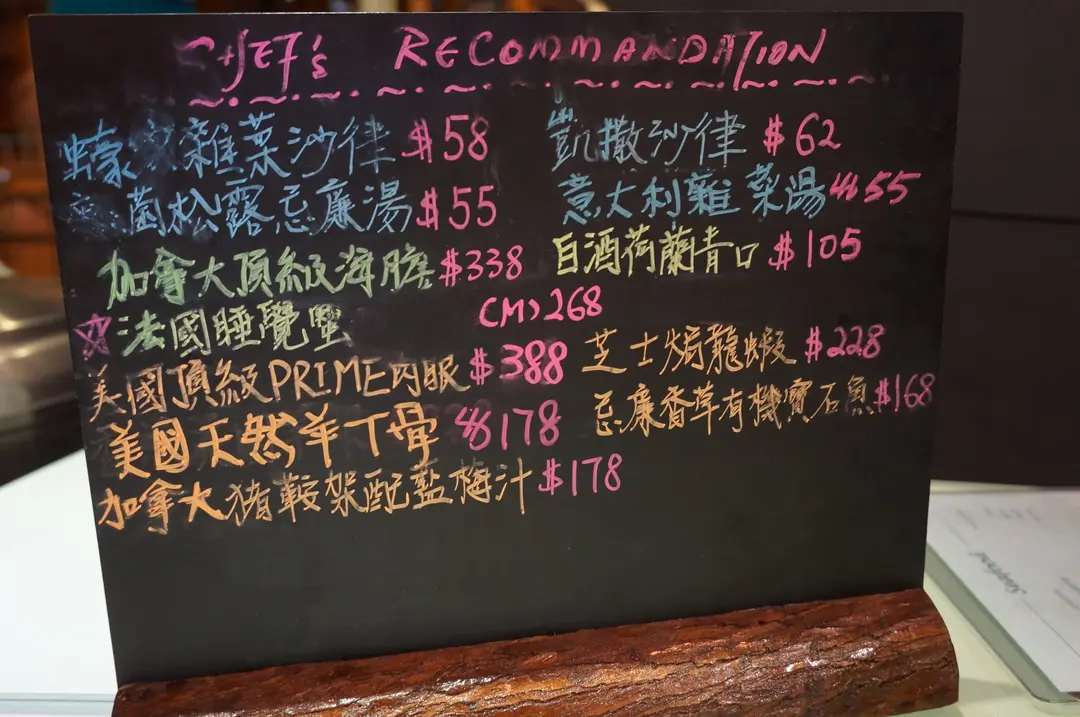 CHEF's RECOMMANDATION
雜菜沙律 $58
凱撒沙律 $62
菌松露忌廉湯 $55
意大利雜菜湯 $55
加拿大頂級海膽 $338
白酒荷蘭青口 $105
法國睡覺蟹 (M) 268
美國頂級PRIME肉眼 $388
芝士焗龍蝦 $228
美國天然羊丁骨 $178
忌廉香草有機寶石魚 $168
加拿大猪鞍架配藍梅汁 $178